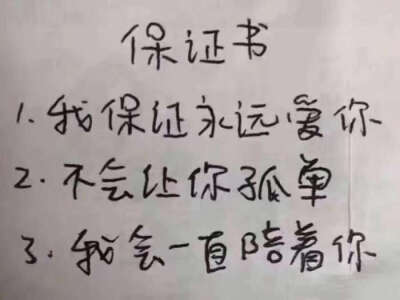 保证书
1. 我保证永远爱你
2. 不会让你孤单
3. 我会一直陪着你